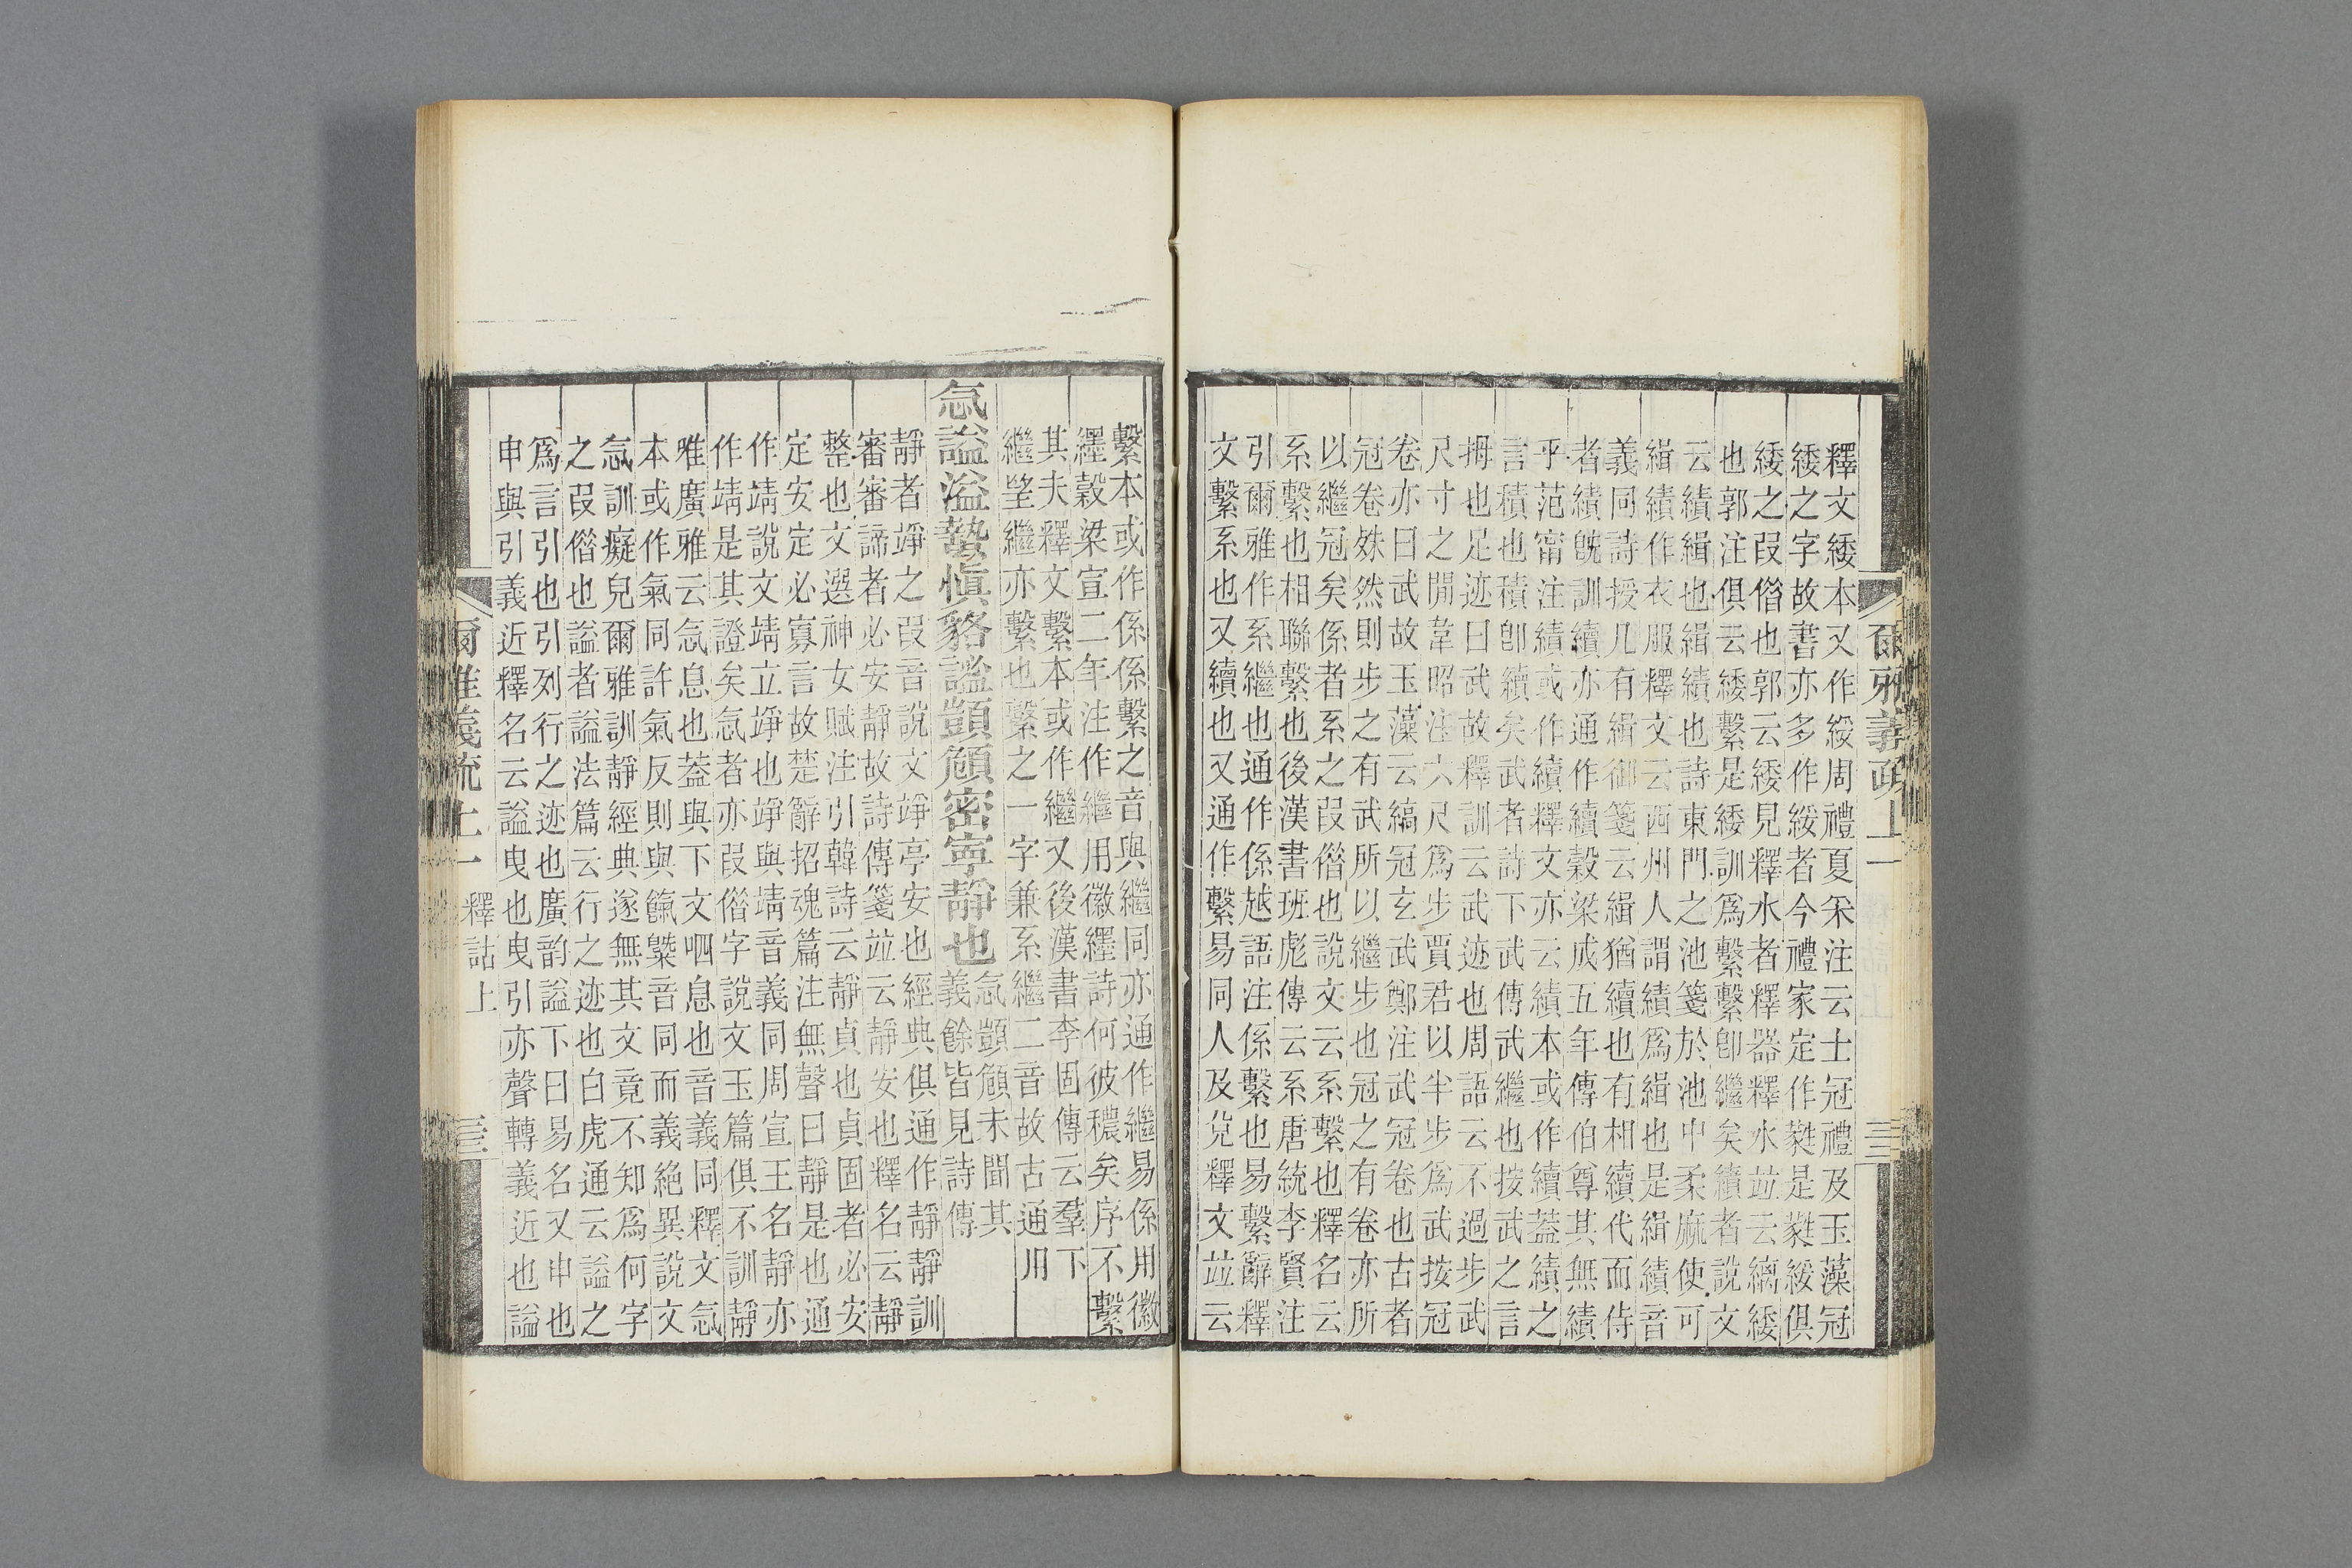 爾雅義疏上一
三三
釋文緌本又作綏周禮夏采注云士冠禮及玉藻冠
緌之字故書亦多作綏者今禮家定作蕤是蕤綏俱
緌之叚借也郭云緌見釋水者釋器釋水竝云縭緌
也郭注俱云緌繫是緌訓爲繫繫卽繼矣續者說文
云績緝也緝績也詩東門之池箋於池中柔麻使可
緝績作衣服釋文云西州人謂績爲緝也是緝績音
義同詩授几有緝御箋云緝猶續也有相續代而侍
者績旣訓續亦通作續穀梁成五年傳伯尊其無績
乎范甯注績或作續釋文亦云績本或作續蓋績之
言積也積卽續矣武者詩下武傳武繼也按武之言
拇也足迹曰武故釋訓云武迹也周語云不過步武
尺寸之閒韋昭注六尺爲步賈君以半步爲武按冠
卷亦曰武故玉藻云縞冠玄武鄭注武冠卷也古者
冠卷殊然則步之有武所以繼步也冠之有卷亦所
以繼冠矣係者系之叚借也說文云系繫也釋名云
系繫也相聯繫也後漢書班彪傳云系唐統李賢注
引爾雅作系繼也通作係越語注係繫也易繫辭釋
文繫系也又續也又通作繫易同人及兌釋文竝云
繫本或作係係繫之音與繼同亦通作繼易係用徽
纆穀梁宣二年注作繼用徽纆詩何彼穠矣序不繫
其夫釋文繫本或作繼又後漢書李固傳云羣下
繼望繼亦繫也繫之一字兼系繼二音故古通用
忥謐溢蟄慎貉謐顗頠密寧靜也忥顗頠未聞其
義餘皆見詩傳
靜者竫之叚音說文竫亭安也經典俱通作靜靜訓
審審諦者必安靜故詩傳箋竝云靜安也釋名云靜
整也文選神女賦注引韓詩云靜貞也貞固者必安
定安定必寡言故楚辭招魂篇注無聲曰靜是也通
作靖說文靖立竫也竫與靖音義同周宣王名靜亦
作靖是其證矣忥者亦叚借字說文玉篇俱不訓靜
雅廣雅云忥息也葢與下文呬息也音義同釋文忥
本或作氣同許氣反則與餼槩音同而義絶異說文
忥訓癡皃爾雅訓靜經典遂無其文竟不知爲何字
之叚借也謐者謐法篇云行之迹也白虎通云謐之
爲言引也引列行之迹也廣韵謐下曰易名又申也
申與引義近釋名云謐曳也曳引亦聲轉義近也謐
爾雅義疏上一
釋詁上
三三